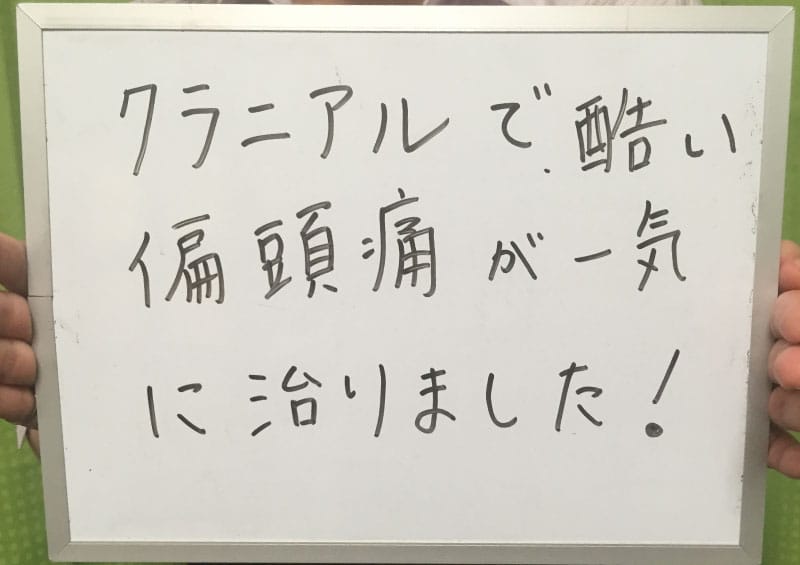 クラニアルで酷い
偏頭痛が一気
に治りました！